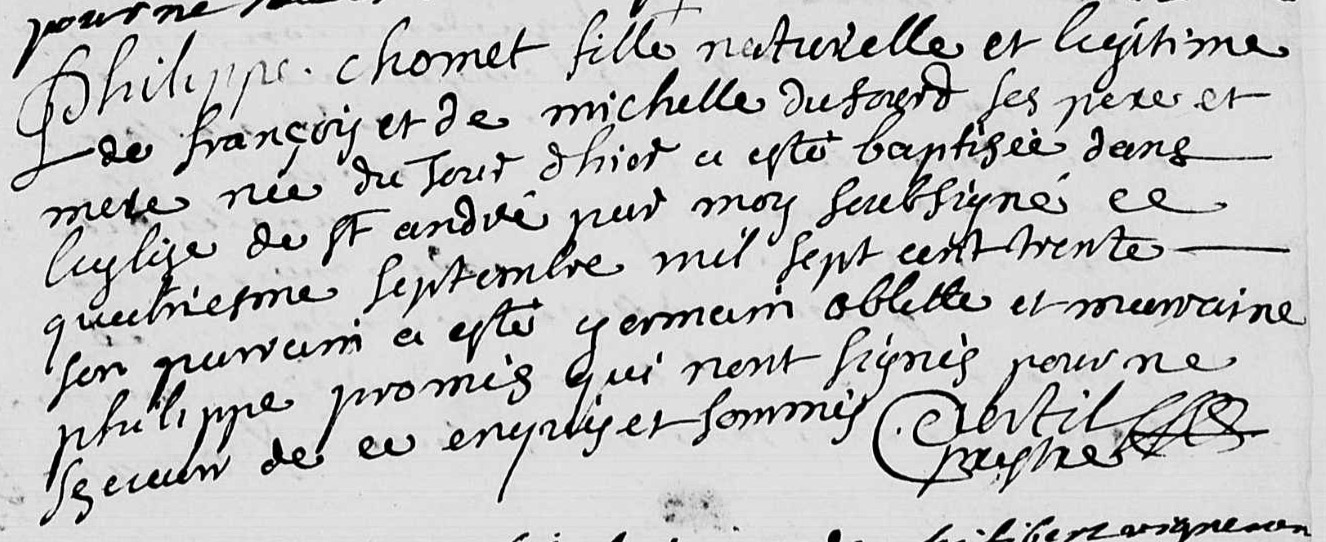 pour ne
Philippe. chomet fille naturelle et legitime
de françois et de michelle dufourd ses pere et
mere née du Jour dhier a esté baptisée dans
leglize de st andré par moy soubsigné ce
quatriesme septembre mil sept cent trente
son parrain a esté germain oblette et marraine
philippe promis qui nont signés pour ne
scavoir de ce enquis et sommés
prestre
vigneron